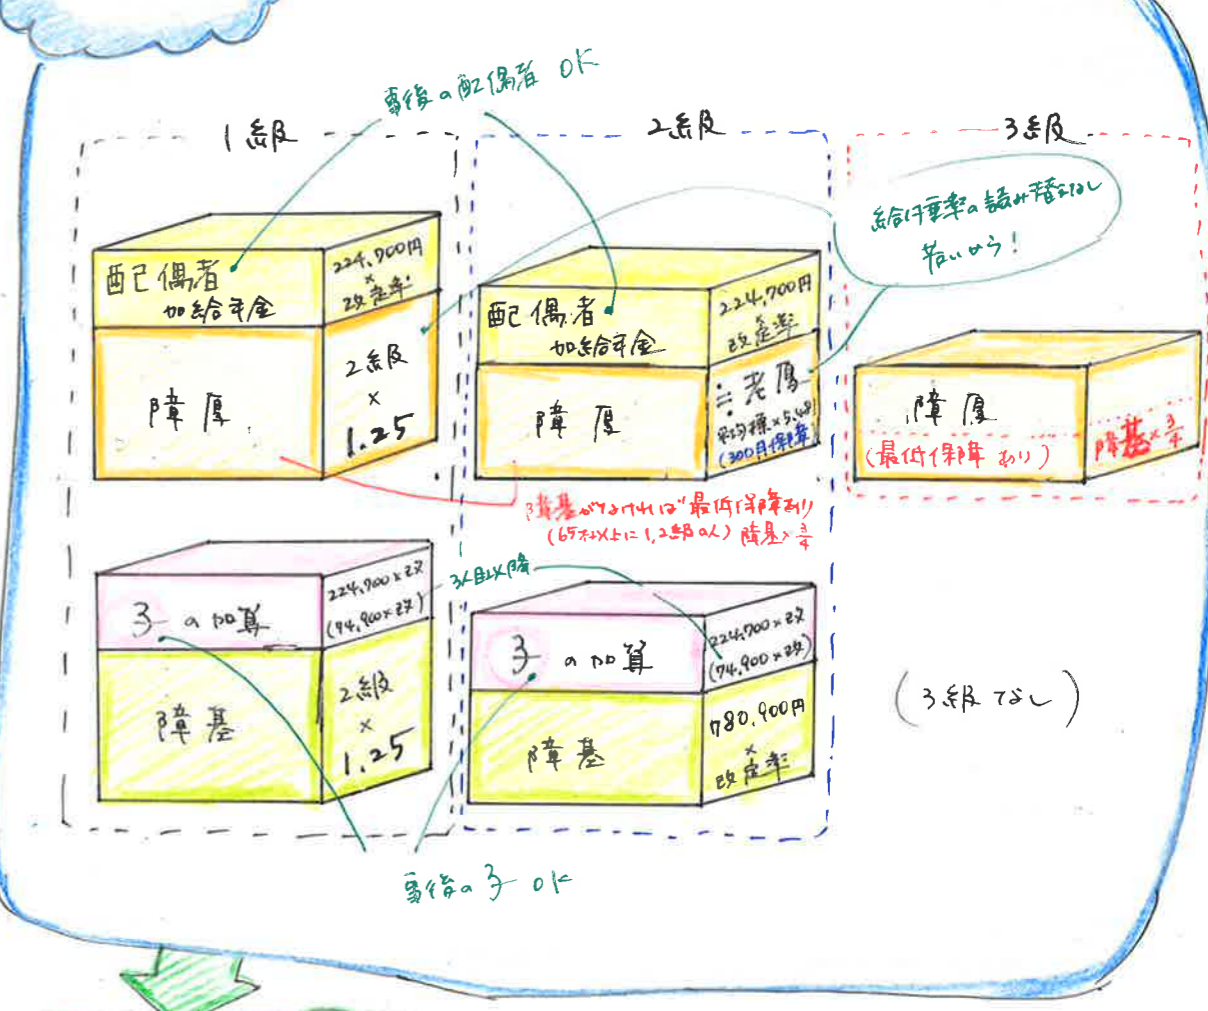 事後の配偶者 OK
1級
2級
3級
給付乗率の読み替えなし
若いから!
配偶者
加給年金
224,700円
×
改定率
障厚
2級
×
1.25
配偶者
加給年金
224,700円
×
改定率
障厚
≒老厚
平均標×5.481
(300月保障)
障厚
(最低保障あり)
障基×3/4
障基がなければ最低保障あり
(65才以上に1,2級の人) 障基×3/4
3人目以降
子の加算
224,700×改
(74,900×改)
障基
2級
×
1.25
子の加算
224,700×改
(74,900×改)
障基
780,900円
×
改定率
(3級なし)
事後の子 OK